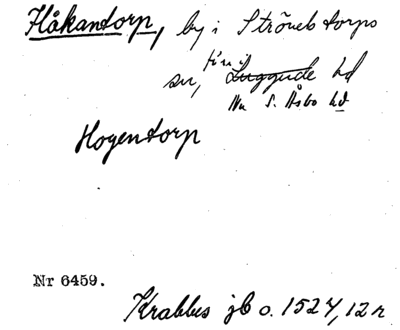 Håkantorp, by i Strövelstorps
sn, förr i Luggude hd
Nu S. Åsbo hd
Hogentorp
Nr 6459.
Krabbes jb o. 1524, 12 r